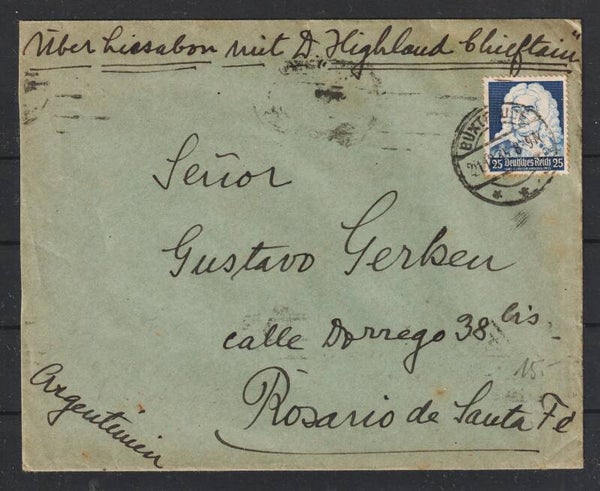 Über Lissabon mit D. Highland Chieftain"
BUXTEHUDE
25 Deutsches Reich 25
Señor
Gustavo Gerken
calle Dorrego 38 bis.
Rosario de Santa Fé
Argentinien
15.-